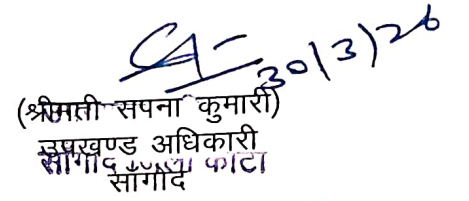 30/3/26
(श्रीमती सपना कुमारी)
उपखण्ड अधिकारी
सांगोद जिला कोटा
साँगोद